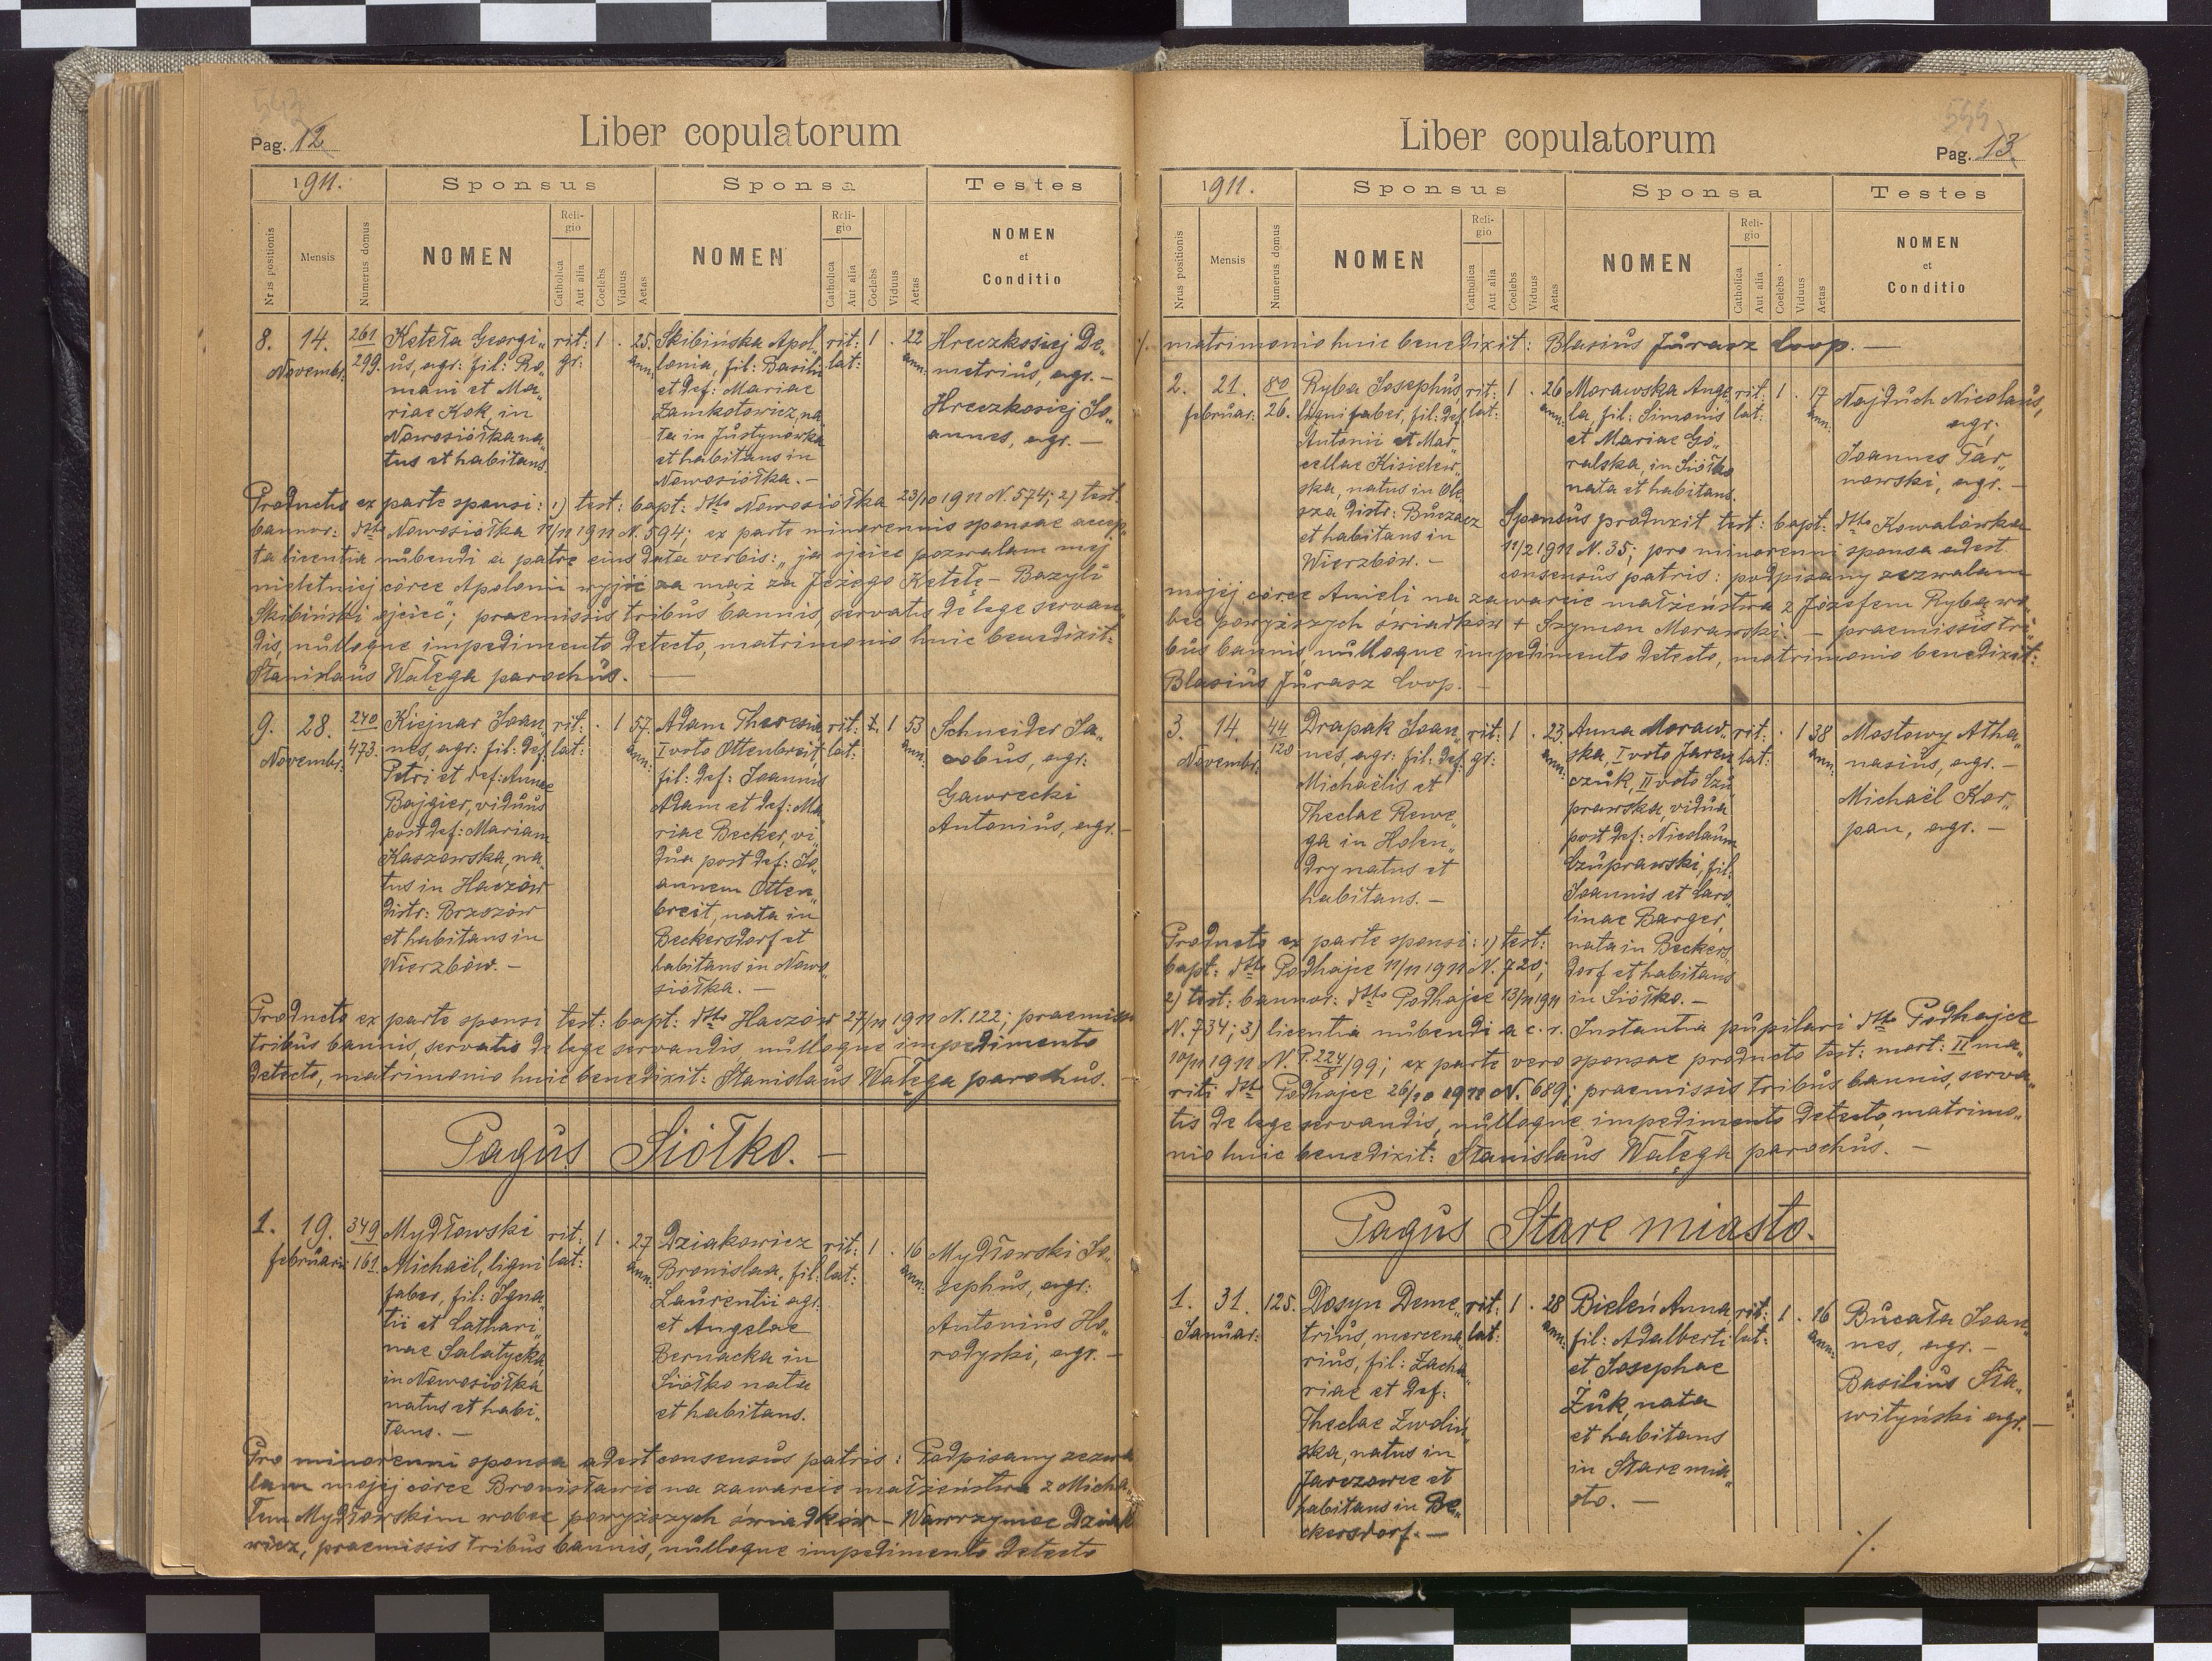 543
Pag. 12
Liber copulatorum
1911.
Sponsus
Sponsa
Testes
Nrus positionis
Mensis
Numerus domus
NOMEN
Reli-
gio
Catholica
Aut alia
Coelebs
Viduus
Aetas
NOMEN
Reli-
gio
Catholica
Aut alia
Coelebs
Viduus
Aetas
NOMEN
et
Conditio
8.
14.
Novembr:
261
299.
Keteła Georgi„
us, agr: fil: Ro„
mani et Ma„
riae Kok, in
Nowosiółka na„
tus et habitans
rit:
gr:
1 .
25.
ann:
Skibińska Apol„
lonia, fil: Basilii
et def: Mariae
Zamkotowicz, na
ta in Justynówka
et habitans in
Nowosiółka. –
rit:
lat:
1 .
22
ann:
Hreczkosiej De„
metrius, agr. –
Hreczkosiej Jo„
annes, agr. –
Producto ex parte sponsi: 1) test: bapt: dtto Nowosiółka 23/10 1911 N. 574; 2) test
bannor: dtto Nowosiółka 12/11 1911 N. 594; ex parte minorennis sponsae accep„
ta licentia nubendi a patre eius data verbis: „ja ojciec pozwalam mej
nieletniej córce Apolonii wyjść za mąż za Jeżego Ketełę – Bazyli
Skibiński ojciec"; praemissis tribus bannis, servatis de lege servan„
dis, nulloque impedimento detecto, matrimonio huic benedixit:
Stanislaus Wałęga parochus. –
9.
28.
Novembr:
240
473.
Kiejnar Joan„
nes, agr: fil: def
Petri et def: Annae
Bajgier, viduus
post def: Mariam
Kaszowska, na„
tus in Haczów
distr: Brzozów
et habitans in
Wierzbów. –
rit:
lat:
. 1
57.
ann:
Adam Theresia
I voto Ottenbreit,
fil: def: Joannis
Adam et def: Ma„
riae Becker, vi„
dua post def: Jo„
annem Otten„
breit, nata in
Beckersdorf et
habitans in Nowo„
siółka. –
rit:
lat:
1
53
ann:
Schneider Ja„
cobus, agr:
Gawrecki
Antonius, agr. –
Producto ex parte sponsi test: bapt: dtto Haczów 27/11 1911 N. 122; praemissis
tribus bannis, servatis de lege servandis, nulloque impedimento
detecto, matrimonio huic benedixit: Stanislaus Wałęga parochus.
Pagus Siółko. –
1.
19.
februari:
349
161.
Mydłowski
Michaël, ligni
faber, fil: Igna„
tii et Cathari„
nae Salatycka,
in Nowosiółka
natus et habi„
tans. –
rit:
lat:
1 .
27
ann:
Dziakowicz
Bronislaa, fil:
Laurentii agr.
et Angelae
Bernacka in
Siółko nata
et habitans.
rit:
lat:
1 .
16
ann:
Mydłowski Jo„
sephus, agr:
Antonius Ho„
rodyski, agr. –
Pro minorenni sponsa adest consensus patris: Podpisany zezwa
lam mojej córce Bronisławie na zawarcie małżeństwa z Micha„
łem Mydłowskim wobec powyższych świadków – Wawrzyniec Dziako
wicz, praemissis tribus bannis, nulloque impedimento detecto
544
Pag. 13.
Liber copulatorum
1911.
Sponsus
Sponsa
Testes
Nrus positionis
Mensis
Numerus domus
NOMEN
Reli-
gio
Catholica
Aut alia
Coelebs
Viduus
Aetas
NOMEN
Reli-
gio
Catholica
Aut alia
Coelebs
Viduus
Aetas
NOMEN
et
Conditio
·/. matrimonio huic benedixit: Blasius Jurasz Coop. –
2.
21.
februar:
80
26.
Ryba Josephus,
ligni faber, fil: def
Antonii et Mar„
cellae Kisielew„
ska, natus in Ole
sza distr: Buczacz
et habitans in
Wierzbów. –
rit:
lat:
1 .
26
ann:
Morawska Ange„
la, fil: Simonis
et Mariae Gó„
ralska, in Siółko
nata et habitans.
rit:
lat:
1 .
17
ann:
Najduch Nicolaus,
agr;
Joannes Tar„
nowski, agr. –
Sponsus produxit test: bapt: dtto Kowalówka
12/2 1911 N. 35; pro minorenni sponsa adest
consensus patris: podpisany zezwalam
mojej córce Anieli na zawarcie małżeństwa z Józefem Rybą wo„
bec powyższych świadków + Szymon Morawski. – praemissis tri„
bus bannis, nulloque impedimento detecto, matrimonio benedixit:
Blasius Jurasz Coop. –
3.
14.
Novembr:
44
120
Drapak Joan„
nes, agr: fil: def:
Michaëlis et
Theclae Rewe„
ga in Holen„
dry natus et
habitans. –
rit:
gr:
1 .
23.
ann:
Anna Moraw„
ska, I voto Jarem
czuk, II voto Czu„
prawska, vidua
post def: Nicolaum
Czuprawski, fil:
Joannis et Caro„
linae Barger,
nata in Beckers„
dorf et habitans
in Siółko. –
rit:
lat:
. 1
38
ann:
Mostowy Atha„
nasius, agr. –
Michaël Kor„
pan, agr. –
Producto ex parte sponsi: 1) test:
bapt: dtto Podhajce 11/11 1911 N. 720;
2) test: bannor: dtto Podhajce 13/11 1911
N. 734; 3) licentia nubendi a c. r. Instantia pupilari dtto Podhajce
10/11 1911 N. P. 224/99; ex parte vero sponsae producto test: mort: II ma„
riti dtto Podhajce 26/10 1911 N. 689; praemissis tribus bannis, serva„
tis de lege servandis, nulloque impedimento detecto, matrimo„
nio huic benedixit: Stanislaus Wałęga parochus. –
Pagus Stare miasto.
1.
31.
Januar:
125.
Dosyn Deme„
trius, mercena„
rius, fil: Zacha„
riae et def:
Theclae Zwoliń„
ska, natus in
Jarczowce et
habitans in Be„
ckersdorf. –
rit:
lat:
1 .
28
ann:
Bieleń Anna,
fil: Adalberti
et Josephae
Żuk, nata
et habitans
in Stare mia„
sto. –
rit:
lat:
1 .
16
ann:
Bucała Joan„
nes, agr. –
Basilius Sła„
wityński agr. –
·/.